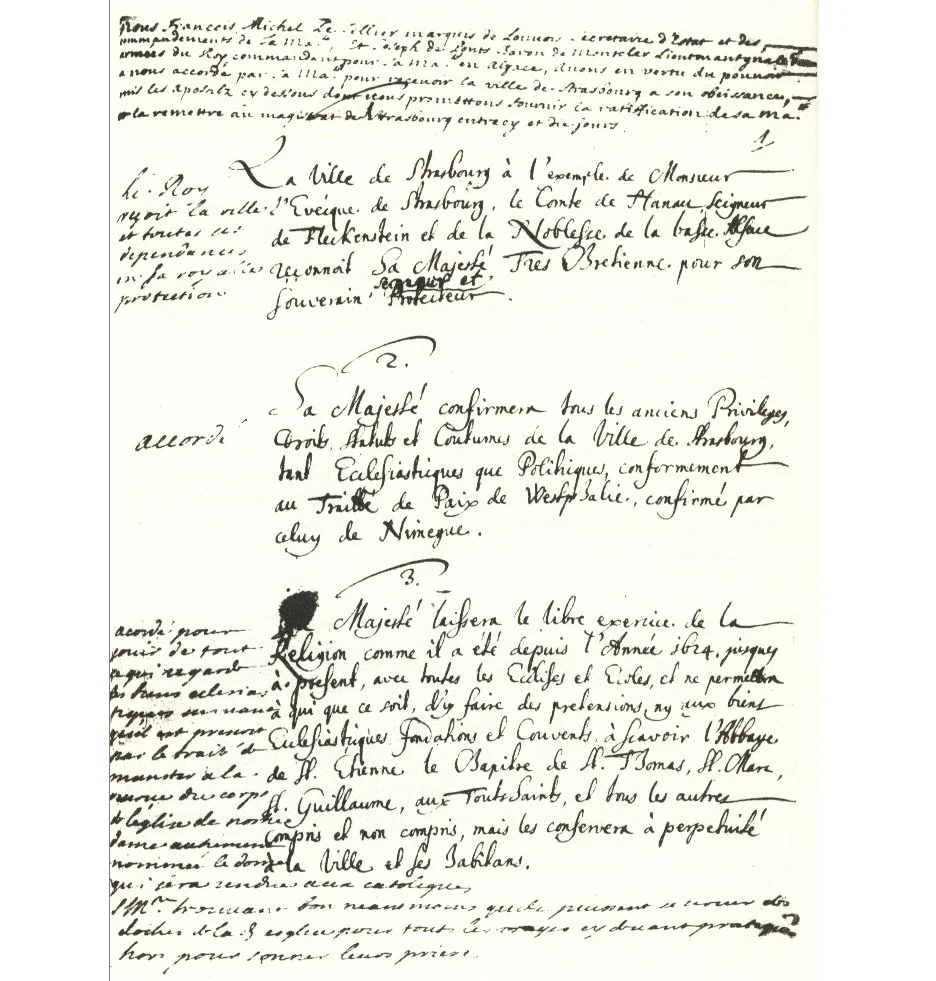 Nous François Michel Le Tellier marquis de Louvois Secretaire d'Estat et des
commandements de Sa Ma.té, Et Joseph de Ponts Baron de Montclar Lieutenant gnal des
armées du Roy commandant pour sa Ma.té en alsace, avons en vertu du pouvoir
a nous accordé par sa Ma.té pour recevoir la ville de Strasbourg a son obeissance,
mis les apostils cy dessous dont nous promettons fournir la ratiffication de sa Ma.té
et la remettre au magistrat de Strasbourg entre cy et dix jours.
1
La Ville de Strasbourg à l'exemple de Monsieur
l'Evéque de Strasbourg, le Comte de Hanau Seigneur
de Fleckenstein et de la Noblesse de la basse Alsace
reconnoit Sa Majesté Tres Chretienne pour son
Souverain Seigneur et Protecteur.
le Roy
reçoit la ville
et toutes ses
dependances
en sa royalle
protection
2.
Sa Majesté confirmera tous les anciens Privileges,
Droits, Statuts et Coutumes de la Ville de Strasbourg,
tant Ecclesiastiques que Politiques, conformement
au Traitté de Paix de Westphalie, confirmé par
celuy de Nimegue.
accordé
3.
Sa Majesté laissera le libre exercice de la
Religion comme il a été depuis l'Année 1624. jusques
à present, avec toutes les Eglises et Ecoles, et ne permettra
à qui que ce soit, d'y faire des pretensions, ny aux biens
Ecclesiastiques Fondations et Couvents, à scavoir l'Abbaye
de St. Etienne le Chapitre de St. Thomas, St. Marc,
St. Guillaume, aux Touts Saints, et tous les autres
compris et non compris, mais les conservera à perpetuité
à la Ville et ses habitans.
acordé pour
jouir de tout
ce qui regarde
les biens eclesias
tiques suivant
quil est prescrit
par le traité de
munster a la
reserve du corps
de l'église de nostre
dame autrement
nommée le dome
qui sera rendue aux catoliques
S.M.té trouvant bon neansmoins quils puissent se servir des
cloches de la d. esglise pour tous les usages cy devant pratiqués
hors pour sonner leurs prieres.